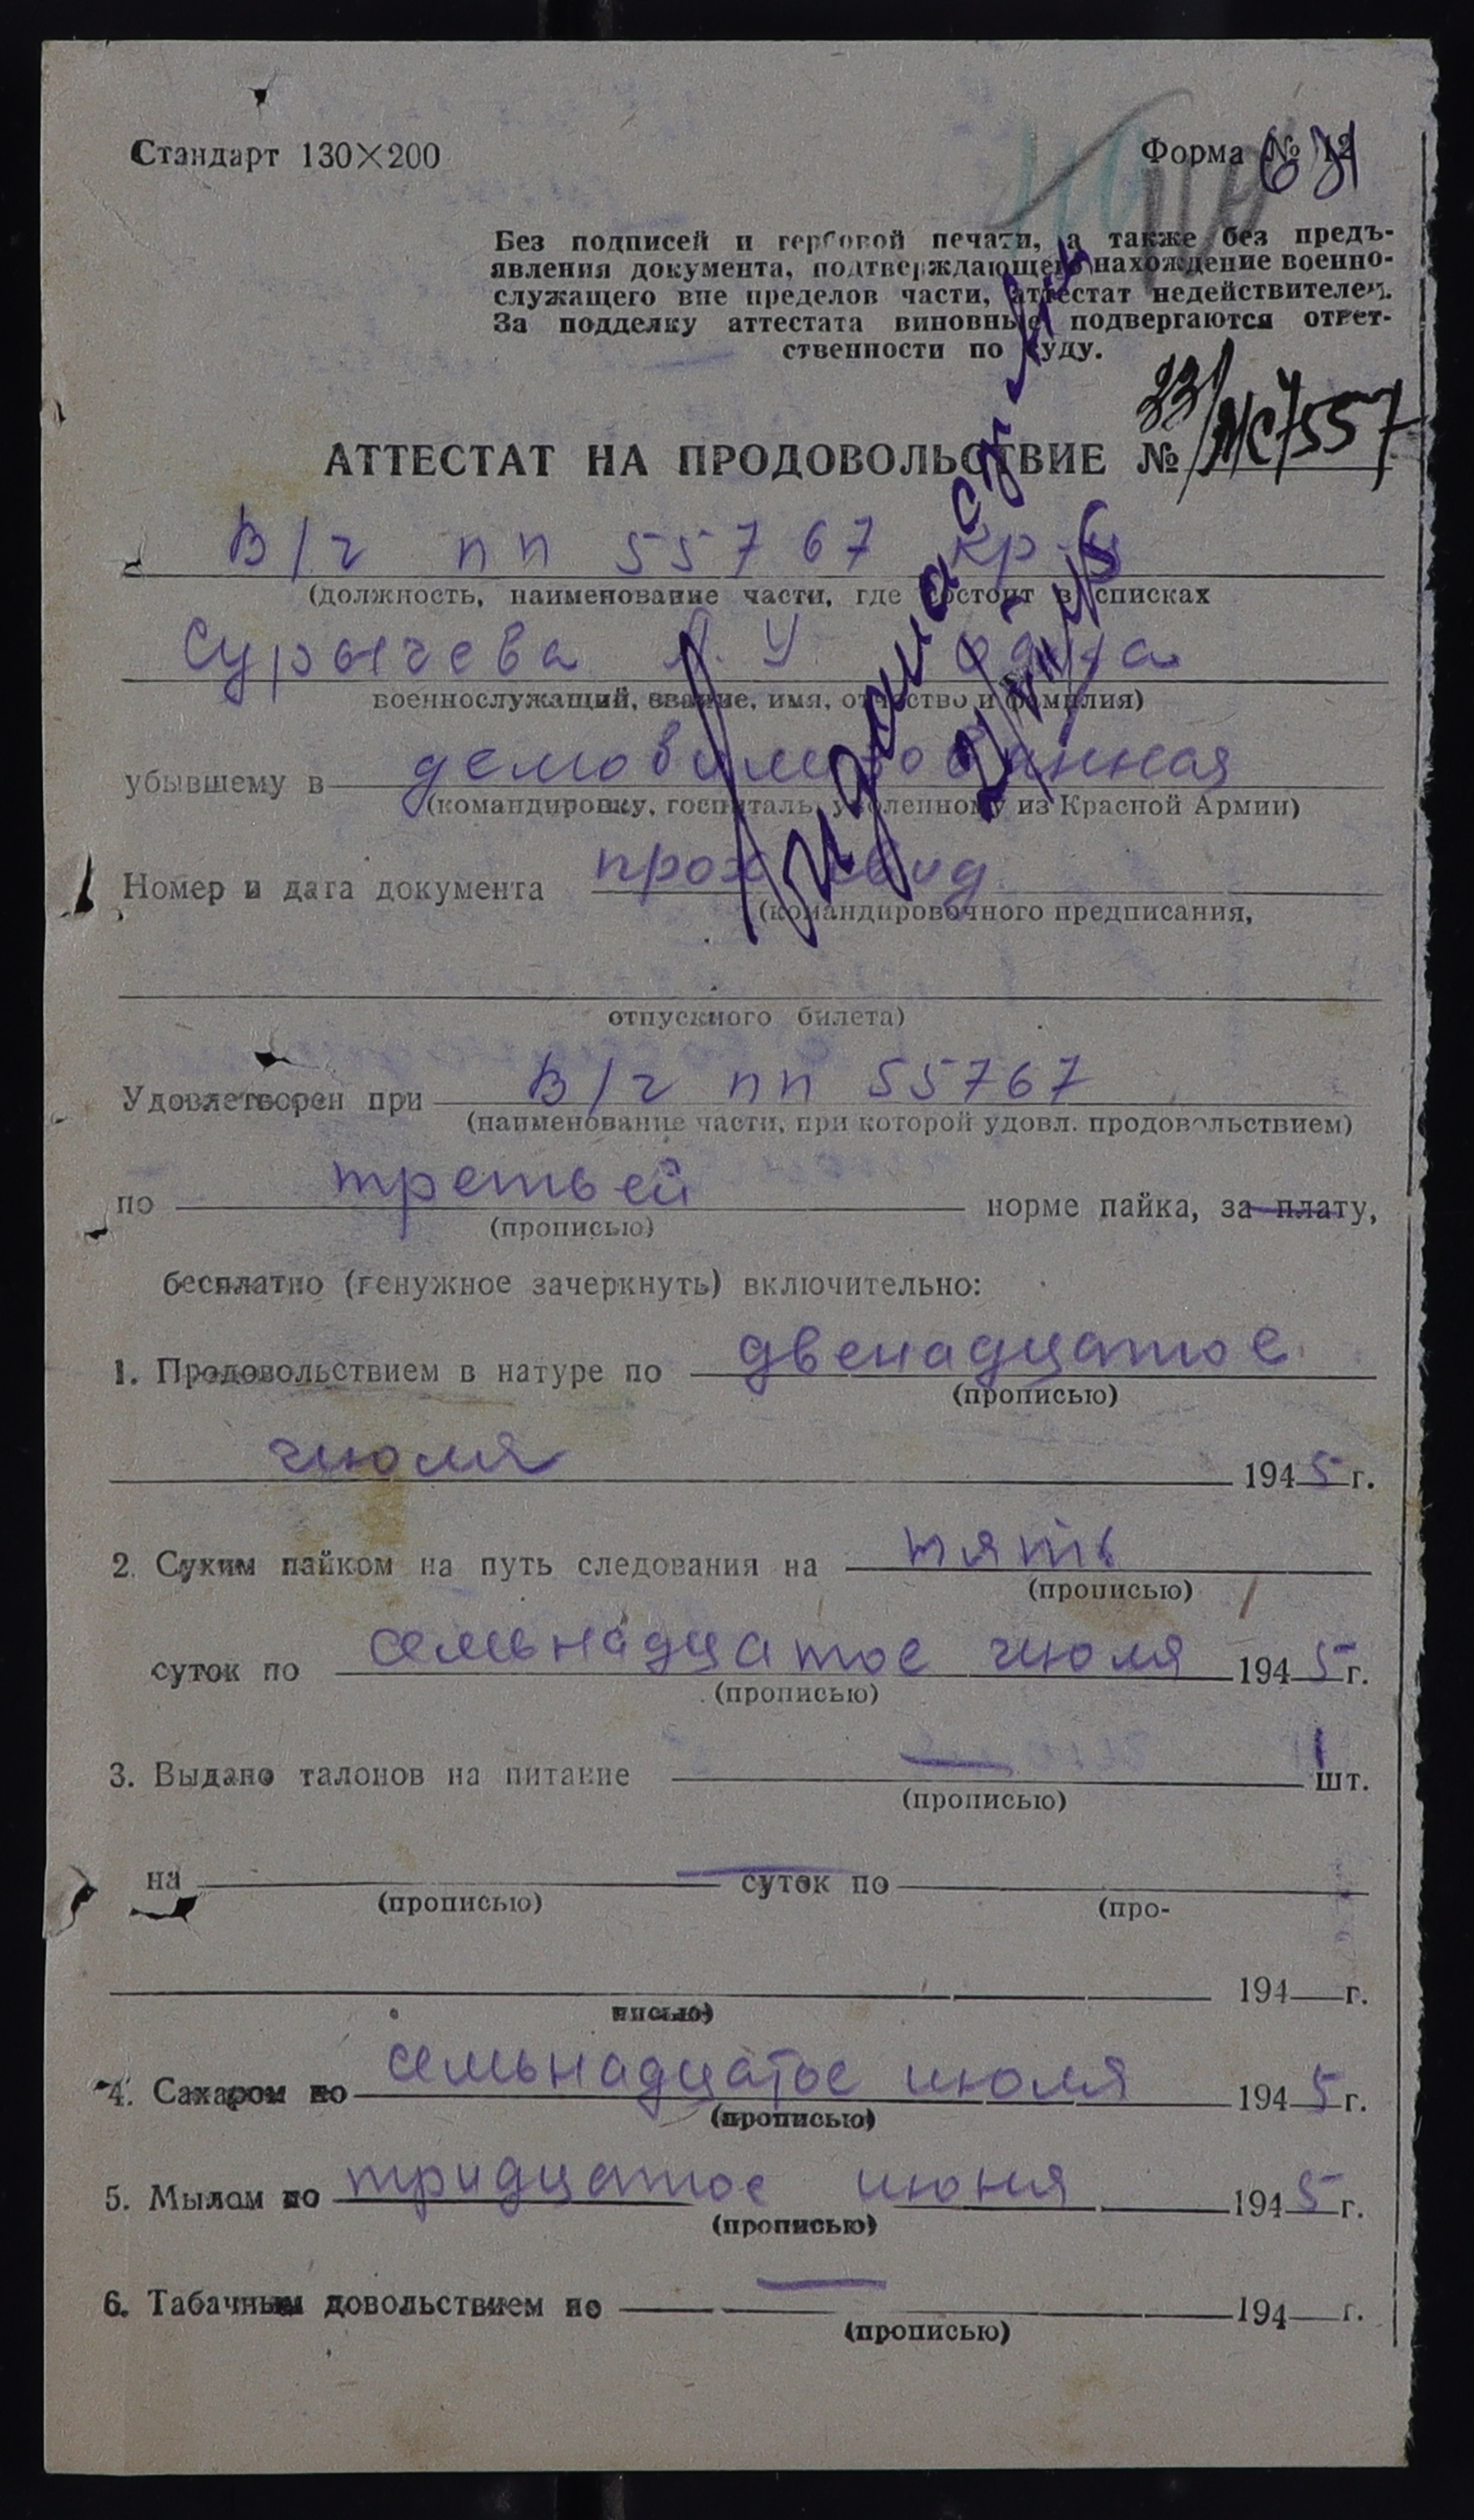 Стандарт 130×200
Форма № 12
Без подписей и гербовой печати, а также без предъ-
явления документа, подтверждающего нахождение военно-
служащего вне пределов части, аттестат недействителен.
За подделку аттестата виновные подвергаются ответ-
ственности по суду.
АТТЕСТАТ НА ПРОДОВОЛЬСТВИЕ №
В/ч пп 55767 кр-ц
(должность, наименование части, где состоит в списках
Сурычева Л. У. одна
военнослужащий, звание, имя, отчество и фамилия)
убывшему в демобилизованная
(командировку, госпиталь, уволенному из Красной Армии)
Номер и дата документа прох свид
(командировочного предписания,
отпускного билета)
Удовлетворен при В/ч пп 55767
(наименование части, при которой удовл. продовольствием)
по третьей норме пайка, за плату,
(прописью)
бесплатно (ненужное зачеркнуть) включительно:
1. Продовольствием в натуре по двенадцатое
(прописью)
июля 1945 г.
2. Сухим пайком на путь следования на пять
(прописью)
суток по семьнадцатое июля 1945 г.
(прописью)
3. Выдано талонов на питание — шт.
(прописью)
на — суток по
(прописью) (про-
194 г.
писью)
4. Сахаром по семьнадцатое июля 1945 г.
(прописью)
5. Мылом по тридцатое июня 1945 г.
(прописью)
6. Табачным довольствием по — 194 г.
(прописью)